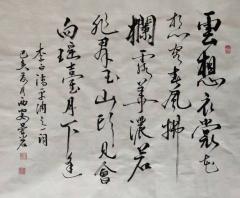 雲想衣裳花
想容春風拂
檻露華濃若
非群玉山頭見會
向瑤臺月下逢
李白清平調之一